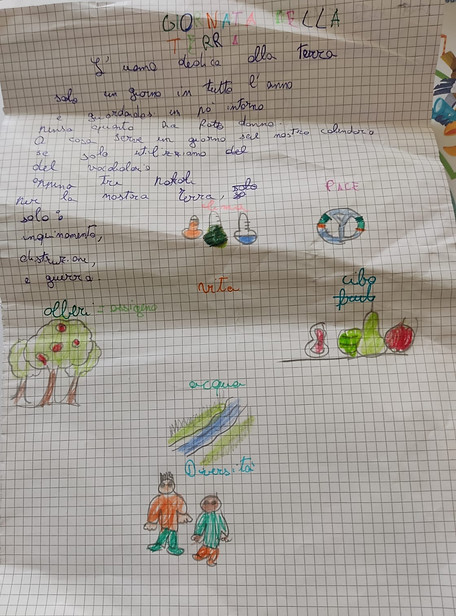 GIORNATA DELLA
TERRA
L'uomo dedica alla terra
solo un giorno in tutto l'anno
e guardados un pò intorno
penso quanto ha fato danno.
A cosa serve un giorno sul nostro calendario
se solo utilizziamo del
del vocabolario
appena tre parole
per la nostra terra, solo
solo
inquinamento,
distruzione,
e guerra
PACE
vita
cibo
alberi = ossigeno
acqua
Diversità